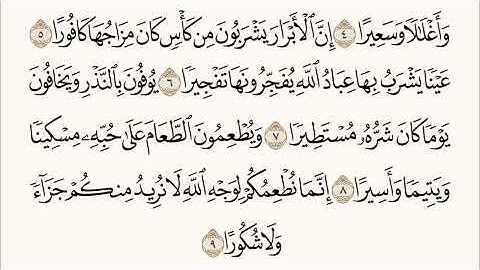 وَأَغْلَٰلًا وَسَعِيرًا ٤ إِنَّ ٱلْأَبْرَارَ يَشْرَبُونَ مِن كَأْسٍ كَانَ مِزَاجُهَا كَافُورًا ٥
عَيْنًا يَشْرَبُ بِهَا عِبَادُ ٱللَّهِ يُفَجِّرُونَهَا تَفْجِيرًا ٦ يُوفُونَ بِٱلنَّذْرِ وَيَخَافُونَ
يَوْمًا كَانَ شَرُّهُۥ مُسْتَطِيرًا ٧ وَيُطْعِمُونَ ٱلطَّعَامَ عَلَىٰ حُبِّهِۦ مِسْكِينًا
وَيَتِيمًا وَأَسِيرًا ٨ إِنَّمَا نُطْعِمُكُمْ لِوَجْهِ ٱللَّهِ لَا نُرِيدُ مِنكُمْ جَزَآءً
وَلَا شُكُورًا ٩